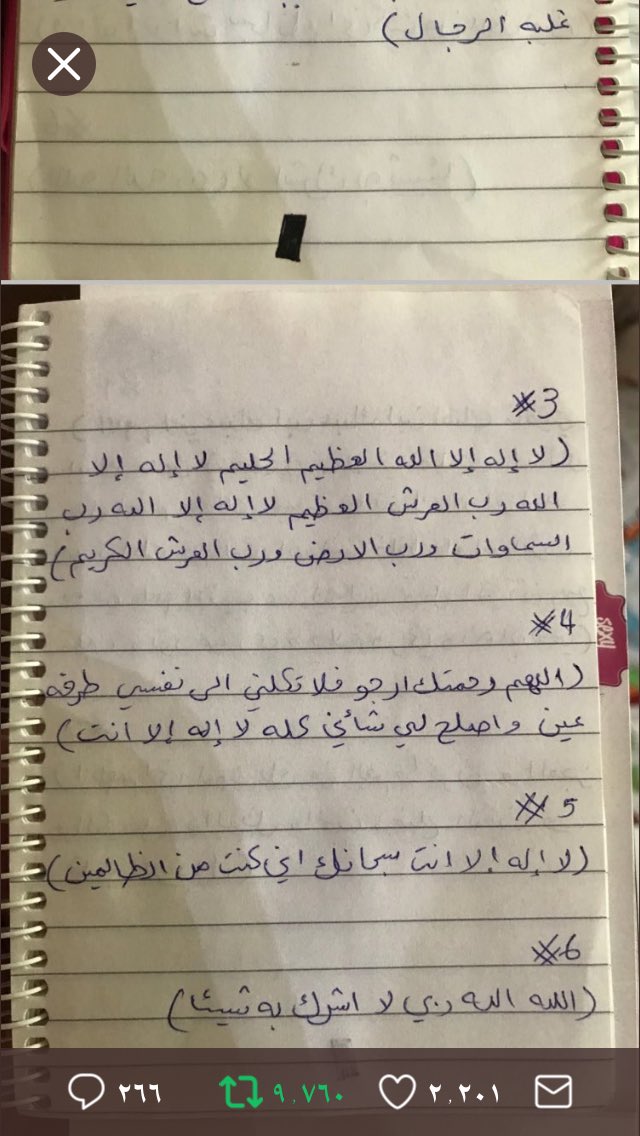 غلبه الرجال)
#3
(لا إله إلا الله العظيم الحليم لا إله إلا
الله رب العرش العظيم لا إله إلا الله رب
السماوات ورب الارض ورب العرش الكريم)
sexy
#4
(اللهم رحمتك ارجو فلا تكلني الى نفسي طرفه
عين واصلح لي شأني كله لا إله إلا انت)
# 5
(لا إله إلا انت سبحانك اني كنت من الظالمين)
#6
(الله الله ربي لا اشرك به شيئا)
٢٦٦ ٩,٧٦٠ ٢,٢٠١